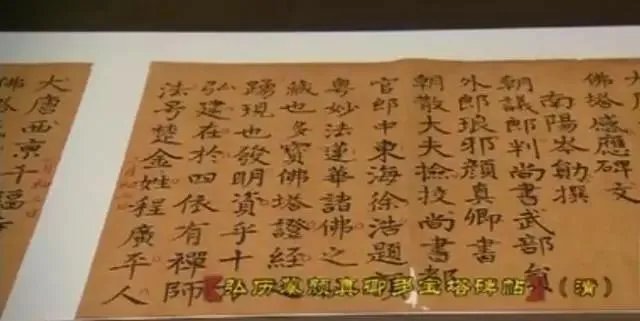 佛塔感應碑文
南陽岑勛撰
朝議郎判尚書武部員
外郎琅邪顏真卿書
朝散大夫撿挍尚書都
官郎中東海徐浩題
粵妙法蓮華諸佛之
藏也多寶佛塔證經
踴現也發明資乎十
弘建在於四依有禪師
法号楚金姓程廣平人
大唐西京千福
佛塔
【弘历摹颜真卿多宝塔碑帖】（清）